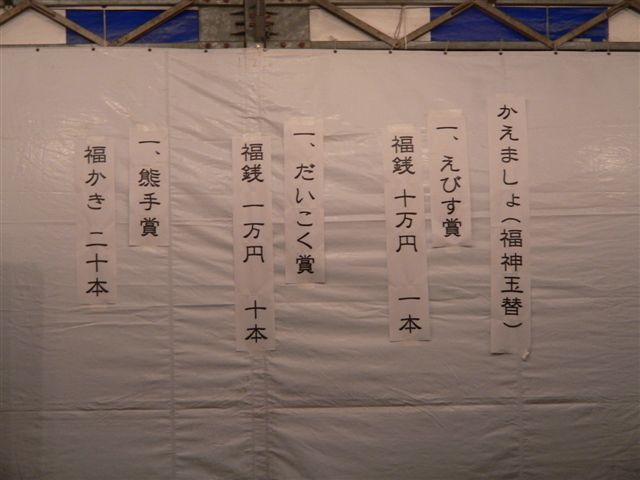 かえましょ(福神玉替)
一、えびす賞
福銭 十万円 一本
一、だいこく賞
福銭 一万円 十本
一、熊手賞
福かき 二十本